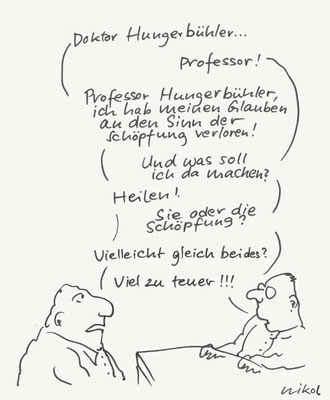 Doktor Hungerbühler...
Professor!
Professor Hungerbühler,
ich hab meinen Glauben
an den Sinn der
Schöpfung verloren!
Und was soll
ich da machen?
Heilen!
Sie oder die
Schöpfung?
Vielleicht gleich beides?
Viel zu teuer!!!
nikol